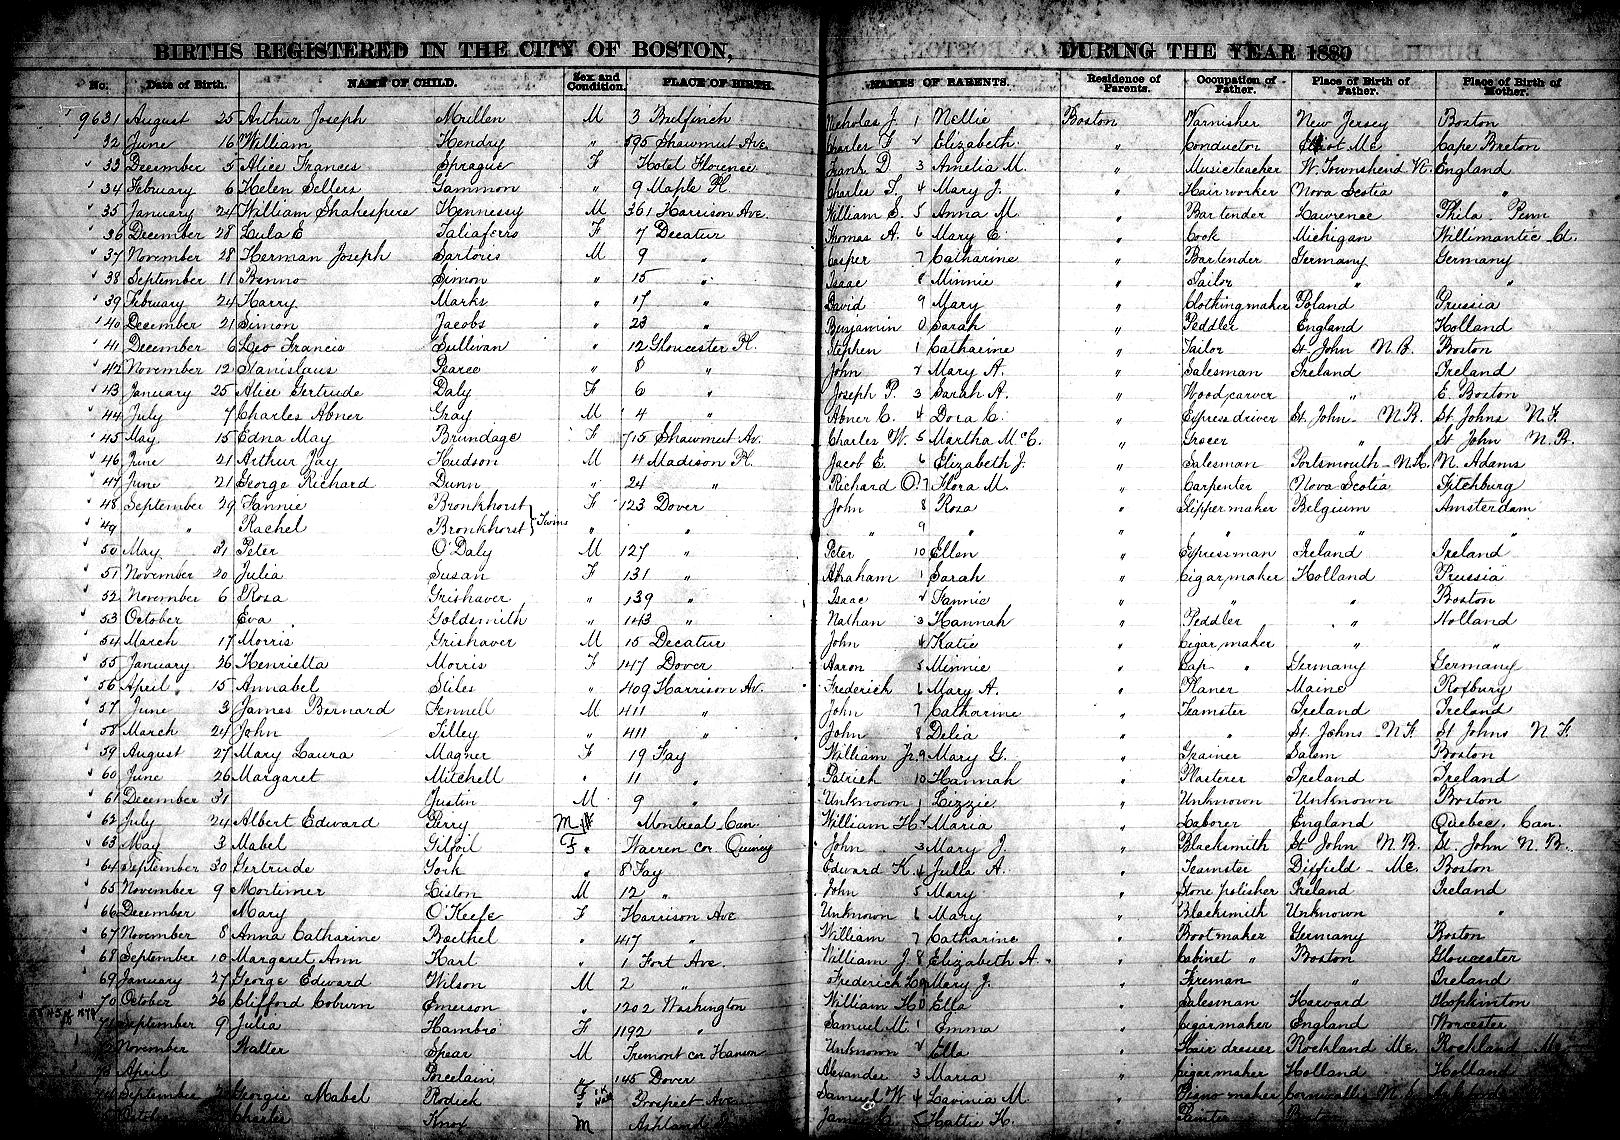 BIRTHS REGISTERED IN THE CITY OF BOSTON, DURING THE YEAR 1880
No. Date of Birth. NAME OF CHILD. Sex and Condition. PLACE OF BIRTH. NAMES OF PARENTS. Residence of Parents. Occupation of Father. Place of Birth of Father. Place of Birth of Mother.
9631 August 25 Arthur Joseph Mullen M 3 Bulfinch Nicholas J. 1 Nellie Boston Varnisher New Jersey Boston
32 June 16 William Hendry " 595 Shawmut Ave. Charles F 2 Elizabeth " Conductor Eliot Me. Cape Breton
33 December 5 Alice Frances Sprague F Hotel Florence Frank D. 3 Amelia M. " Music teacher W. Townshend Vt. England
34 February 6 Helen Sellers Gammon " 9 Maple Pl. Charles T. 4 Mary J. " Hair worker Nova Scotia "
35 January 24 William Shakespere Hennessy M 361 Harrison Ave. William S. 5 Anna M. " Bartender Lawrence Phila. Penn
36 December 28 Lula E Taliaferro F 7 Decatur Thomas A. 6 Mary E. " Cook Michigan Willimantic Ct.
37 November 28 Herman Joseph Sartoris M 9 " Casper 7 Catharine " Bartender Germany Germany
38 September 11 Benno Simon " 15 " Isaac 8 Minnie " Tailor " "
39 February 24 Harry Marks " 17 " David 9 Mary " Clothing maker Poland Prussia
40 December 21 Simon Jacobs " 23 " Benjamin 0 Sarah " Peddler England Holland
41 December 6 Leo Francis Sullivan " 12 Gloucester Pl. Stephen 1 Catharine " Tailor St. John N.B. Boston
42 November 12 Stanislaus Pearce " 8 " John 2 Mary A. " Salesman Ireland Ireland
43 January 25 Alice Gertrude Daly F 6 " Joseph P. 3 Sarah A. " Wood carver " E. Boston
44 July 7 Charles Abner Gray M 4 " Abner C. 4 Dora C. " Express driver St. John N.B. St. Johns N.F.
45 May 15 Edna May Brundage F 715 Shawmut Av. Charles W. 5 Martha McC. " Grocer " St. John N.B.
46 June 21 Arthur Jay Hudson M 4 Madison Pl. Jacob E. 6 Elizabeth J. " Salesman Portsmouth N.H. N. Adams
47 June 21 George Richard Dunn " 24 " Richard O. 7 Flora M. " Carpenter Nova Scotia Fitchburg
48 September 29 Fannie Bronkhorst F 123 Dover John 8 Rosa " Slipper maker Belgium Amsterdam
49 " Rachel Bronkhorst } Twins " " " 9 " " " " "
50 May 31 Peter O'Daly M 127 " Peter 10 Ellen " Expressman Ireland Ireland
51 November 20 Julia Susan F 131 " Abraham 1 Sarah " Cigar maker Holland Prussia
52 November 6 Rosa Grishaver " 139 " Isaac 2 Fannie " " " Boston
53 October Eva Goldsmith " 143 " Nathan 3 Hannah " Peddler " Holland
54 March 17 Morris Grishaver M 15 Decatur John 4 Katie " Cigar maker " "
55 January 26 Henrietta Morris F 147 Dover Aaron 5 Minnie " Cap " Germany Germany
56 April 15 Annabel Stiles " 409 Harrison Av. Frederick 6 Mary A. " Planer Maine Roxbury
57 June 3 James Bernard Fennell M 411 " John 7 Catharine " Teamster Ireland Ireland
58 March 24 John Tilley " 411 " John 8 Delia " " St. Johns N.F. St Johns N.F.
59 August 27 Mary Laura Magner F 19 Fay William Jr. 9 Mary G. " Grainer Salem Boston
60 June 26 Margaret Mitchell " 11 " Patrick 10 Hannah " Plasterer Ireland Ireland
61 December 31 Justin M 9 " Unknown 1 Lizzie " Unknown Unknown Boston
62 July 24 Albert Edward Perry M Montreal Can. William H. 2 Maria " Laborer England Quebec, Can.
63 May 3 Mabel Gilfoil F " Warren cor. Quincy John 3 Mary J. " Blacksmith St John N.B. St. John N.B.
64 September 30 Gertrude York " 8 Fay Edward K. 4 Julia A. " Teamster Dixfield Me. Boston
65 November 9 Mortimer Liston M 12 " John 5 Mary " Stone polisher Ireland Ireland
66 December Mary O'Keefe F Harrison Ave Unknown 6 Mary " Blacksmith Unknown "
67 November 8 Anna Catharine Boethel " 417 " William 7 Catharine " Bootmaker Germany Boston
68 September 10 Margaret Ann Hart " 1 Fort Ave. William J. 8 Elizabeth A. " Cabinet " Boston Gloucester
69 January 27 George Edward Wilson M 2 " Frederick L. 9 Mary J. " Fireman " Ireland
70 October 26 Clifford Coburn Emerson " 1202 Washington William H. 0 Ella " Salesman Harvard Hopkinton
71 September 9 Julia Hambro F 1192 " Samuel M. 1 Emma " Cigar maker England Worcester
November Walter Spear M Tremont cor Hanson Unknown 2 Ella " Hair dresser Rockland Me. Rockland Me.
73 April Porcelain 145 Dover Alexander 3 Maria " Cigar maker Holland Holland
74 September Georgie Mabel Rodick F Prospect Ave Samuel W. 4 Lavinia M. " Piano maker Cornwallis
October Charles Knox M Ashland James 5 Hattie H. " Painter Boston